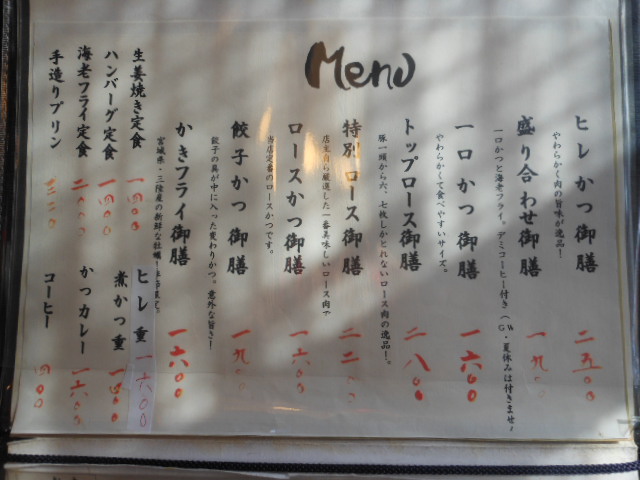 Menu
ヒレかつ御膳 二五〇〇
やわらかく肉の旨味が逸品!
盛り合わせ御膳 一九〇〇
一口かつと海老フライ。デミコーヒー付き(GW・夏休みは付きませ
一口かつ御膳 一六〇〇
やわらかくて食べやすいサイズ。
トップロース御膳 二八〇〇
豚一頭から六、七枚しかとれないロース肉の逸品!。
特別ロース御膳 二二〇〇
店主自ら厳選した一番美味しいロース肉で
ロースかつ御膳 一六〇〇
当店定番のロースかつです。
餃子かつ御膳 一九〇〇
餃子の具が中に入った変わりかつ。意外な旨さ!
かきフライ御膳 一六〇〇
宮城県・三陸産の新鮮な牡蠣!
生姜焼き定食 一四〇〇
ハンバーグ定食 一四〇〇
海老フライ定食 二〇〇〇
手造りプリン 三二〇
ヒレ重 一六〇〇
煮かつ重 一四〇〇
かつカレー 一六〇〇
コーヒー 四〇〇